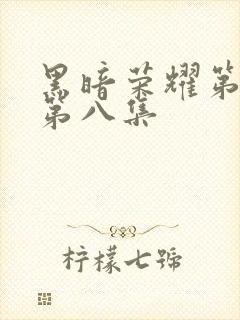 黑暗荣耀第
第八集
柠檬七號